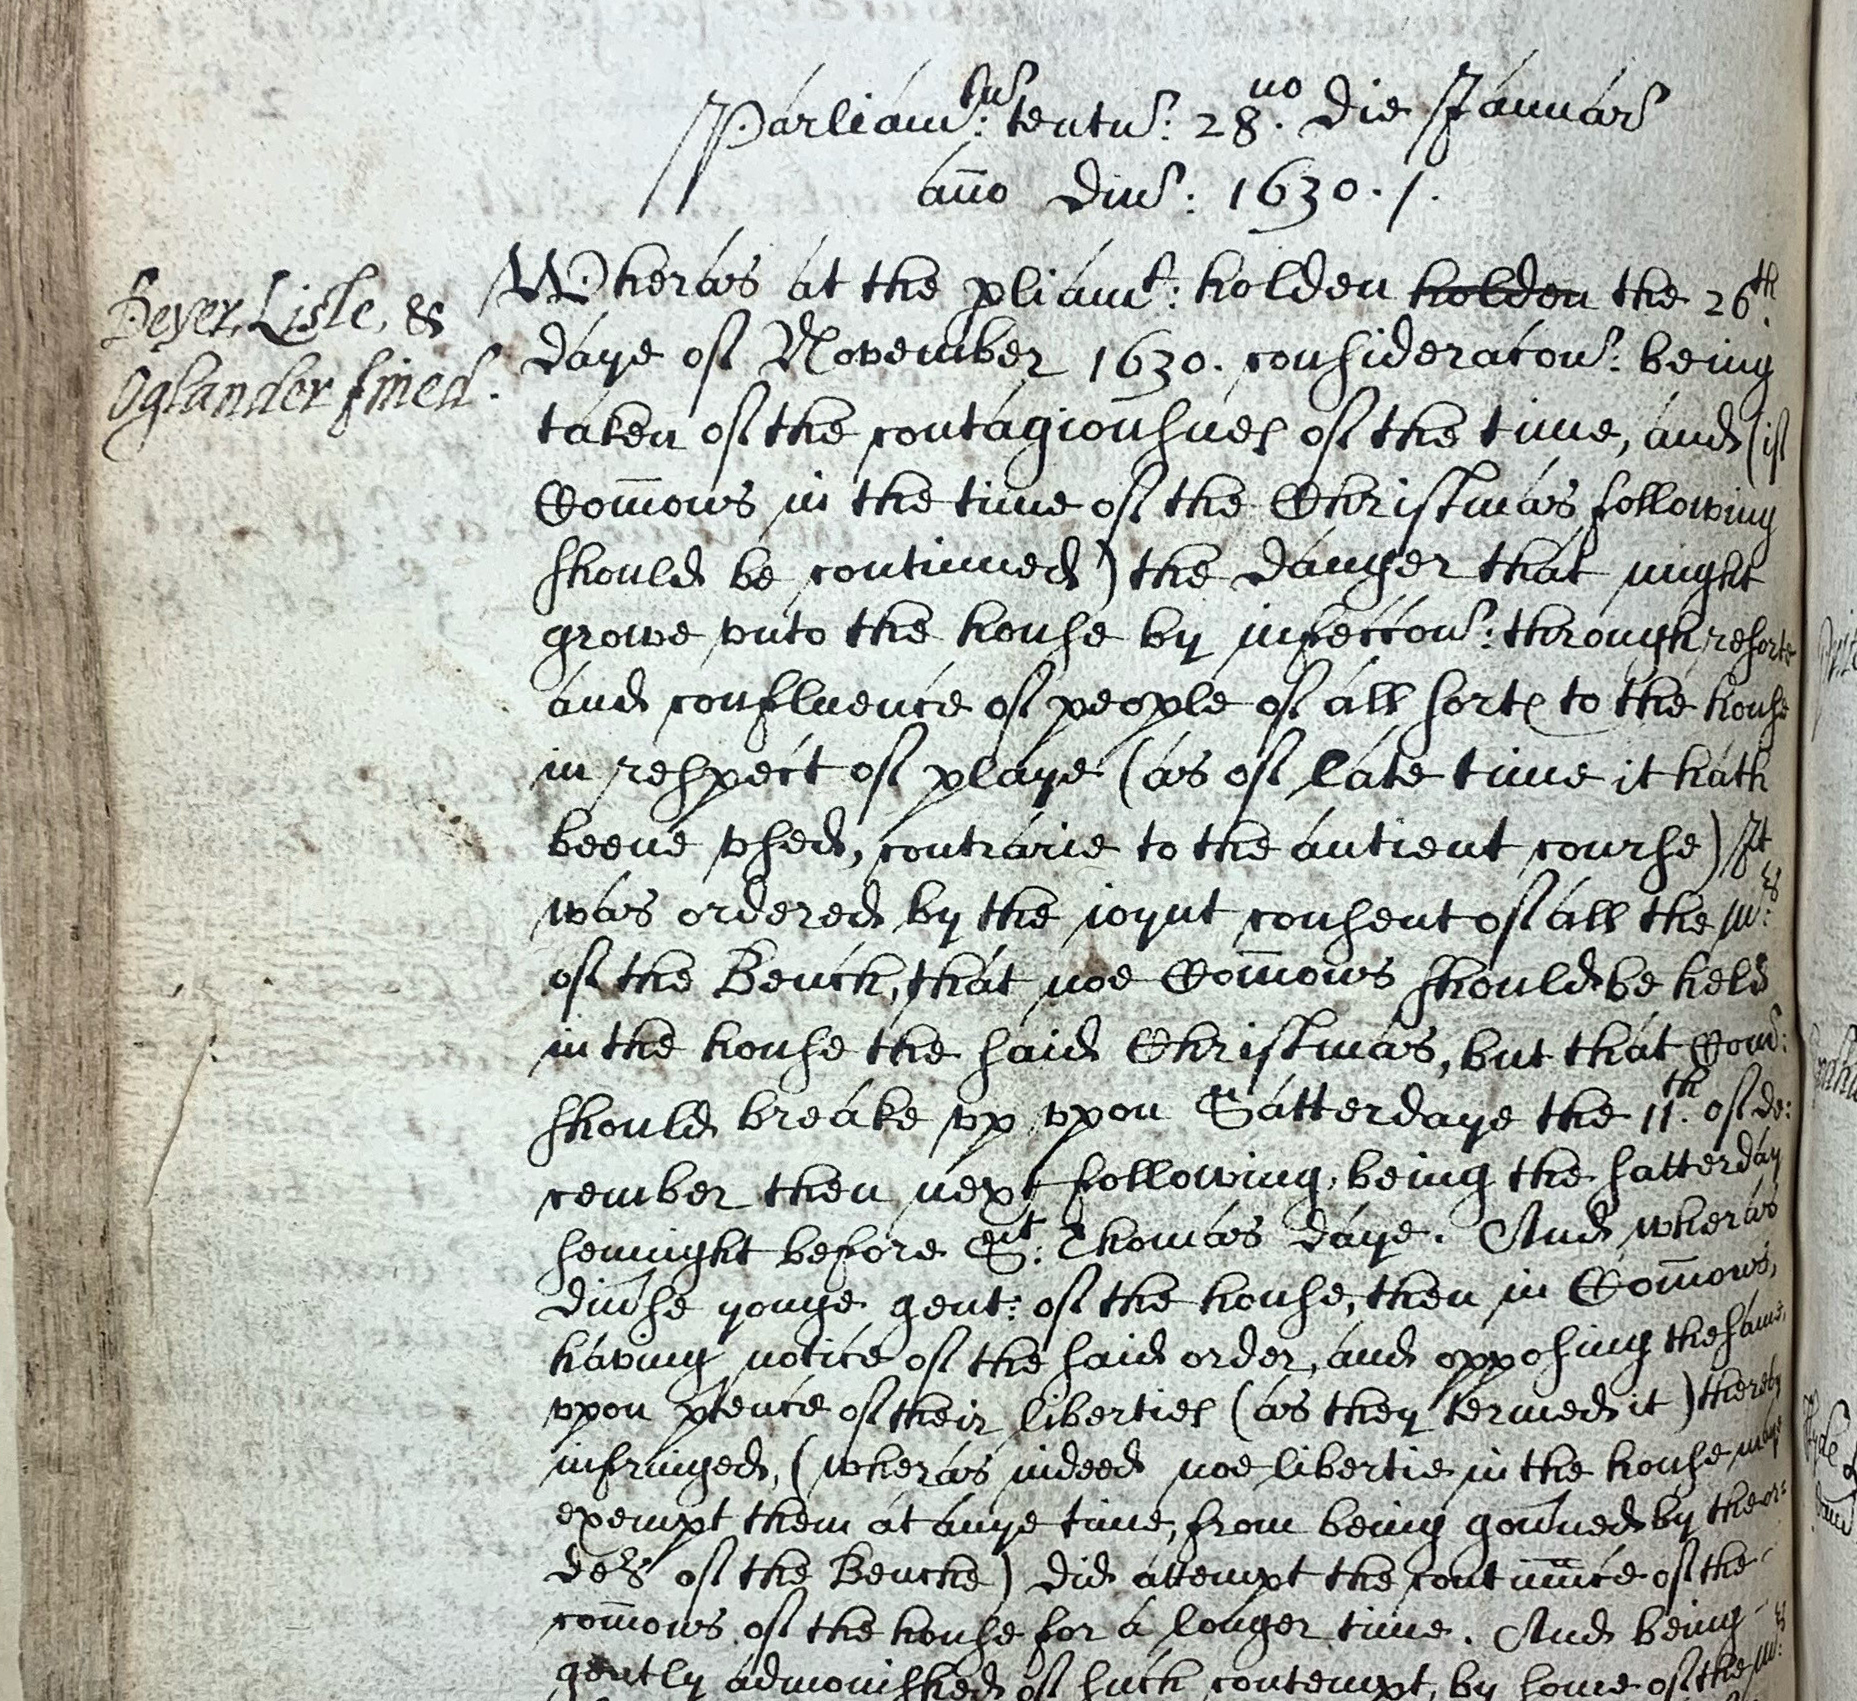 Parliam^tu: tentu: 28^no. die Januar
año Diñ: 1630./.
Beyer, Lisle, &
Oglander fined.
Wheras at the pliam^t: holden holden the 26^th.
daye of November 1630. consideracon: being
taken of the contagiousnes of the time, and (if
Com̄ons in the time of the Christmas following
should be continued) the danger that might
growe vnto the house by infeccon: through resorte
and confluence of people of all sortes to the house
in respect of playe (as of late time it hath
beene vsed, contrarie to the antient course) It
was ordered by the ioynt consent of all the M^rs:
of the Bench, that noe Com̄ons should be held
in the house the said Christmas, but that Com:
should breake vp vpon Satterdaye the 11^th. of de:
cember then next following, being the satterday
sennight before S^nt: Thomas daye. And wheras
diu'se yonge gent: of the house, then in Com̄ons,
having notice of the said order, and opposing the same,
vpon p̱tence of their liberties (as they termed it) thereby
infringed, (wheras indeed noe libertie in the house maye
exempt them at anye time, from being gou'ned by the or:
ders of the Benche) did attempt the continn̄ce of the
com̄ons of the house for a longer time. And being
gently admonished of such contempt, by some of the M^rs: